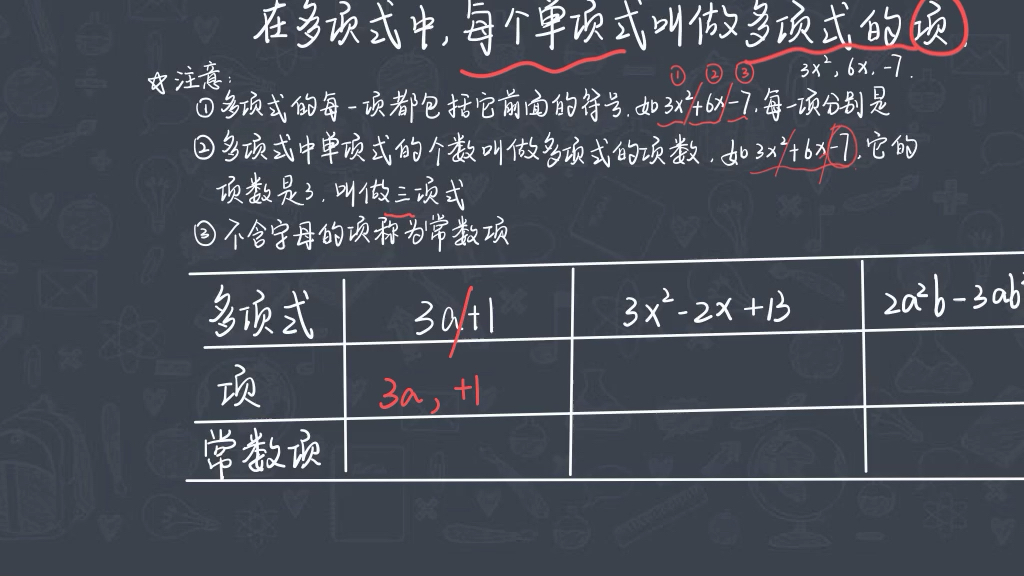 在多项式中,每个单项式叫做多项式的项.
3x²,6x,-7.
☆注意:
① ② ③
①多项式的每一项都包括它前面的符号.如3x²+6x-7.每一项分别是
②多项式中单项式的个数叫做多项式的项数.如3x²+6x-7.它的
项数是3.叫做三项式
③不含字母的项称为常数项
多项式 3a+1 3x²-2x+13 2a²b-3ab²
项 3a,+1
常数项